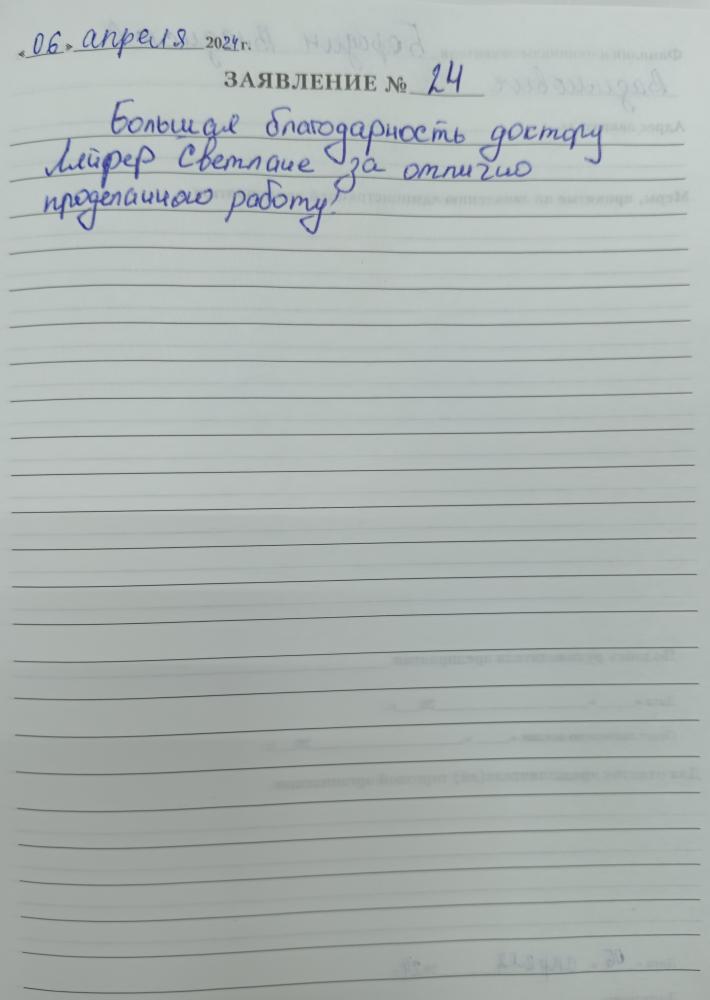 «06» апреля 2024г.
ЗАЯВЛЕНИЕ № 24
Большая благодарность доктору
Ляйфер Светлане за отлично
проделанною работу!